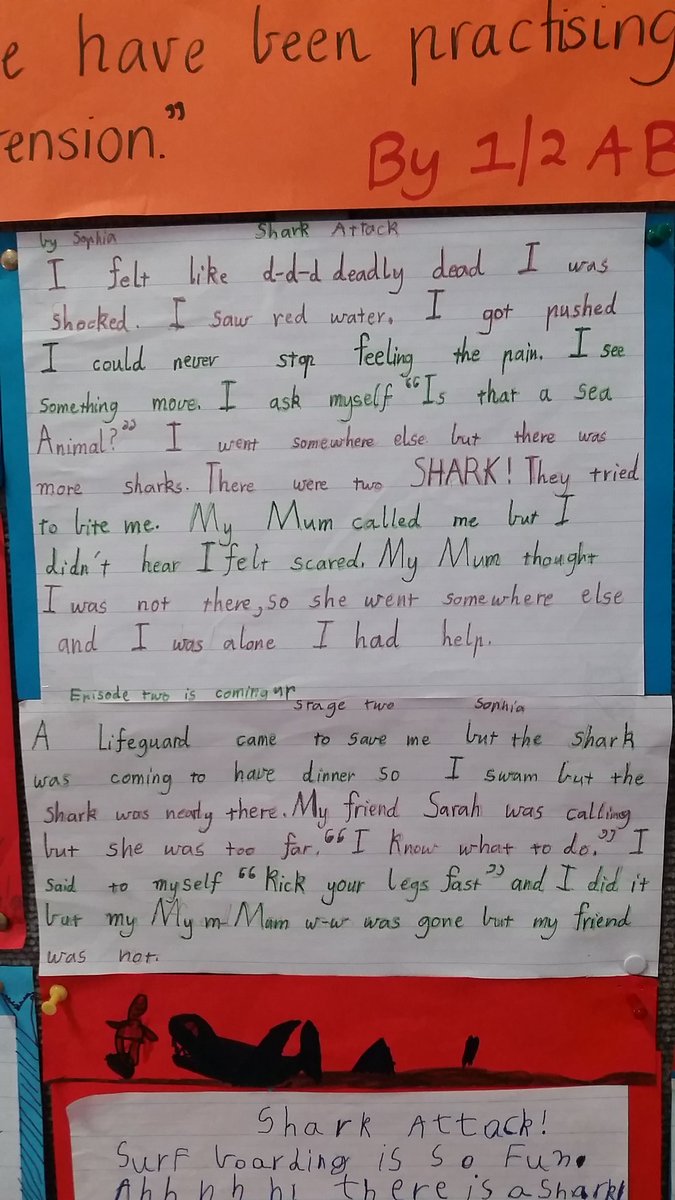 e have been practising
ension."
By 1/2 AB
by Sophia Shark Attack
I felt like d-d-d deadly dead I was
shocked. I saw red water. I got pushed
I could never stop feeling the pain. I see
something move. I ask myself "Is that a sea
Animal?" I went somewhere else but there was
more sharks. There were two SHARK! They tried
to bite me. My Mum called me but I
didn't hear I felt scared. My Mum thought
I was not there, so she went somewhere else
and I was alone I had help.
Episode two is coming up
stage two Sophia
A Lifeguard came to save me but the shark
was coming to have dinner so I swam but the
shark was nearly there. My friend Sarah was calling
but she was too far. "I know what to do." I
said to myself "Kick your legs fast" and I did it
but my My m-Mum w-w was gone but my friend
was not.
Shark Attack!
Surf boarding is so fun.
Ahh h h h! there is a shark!